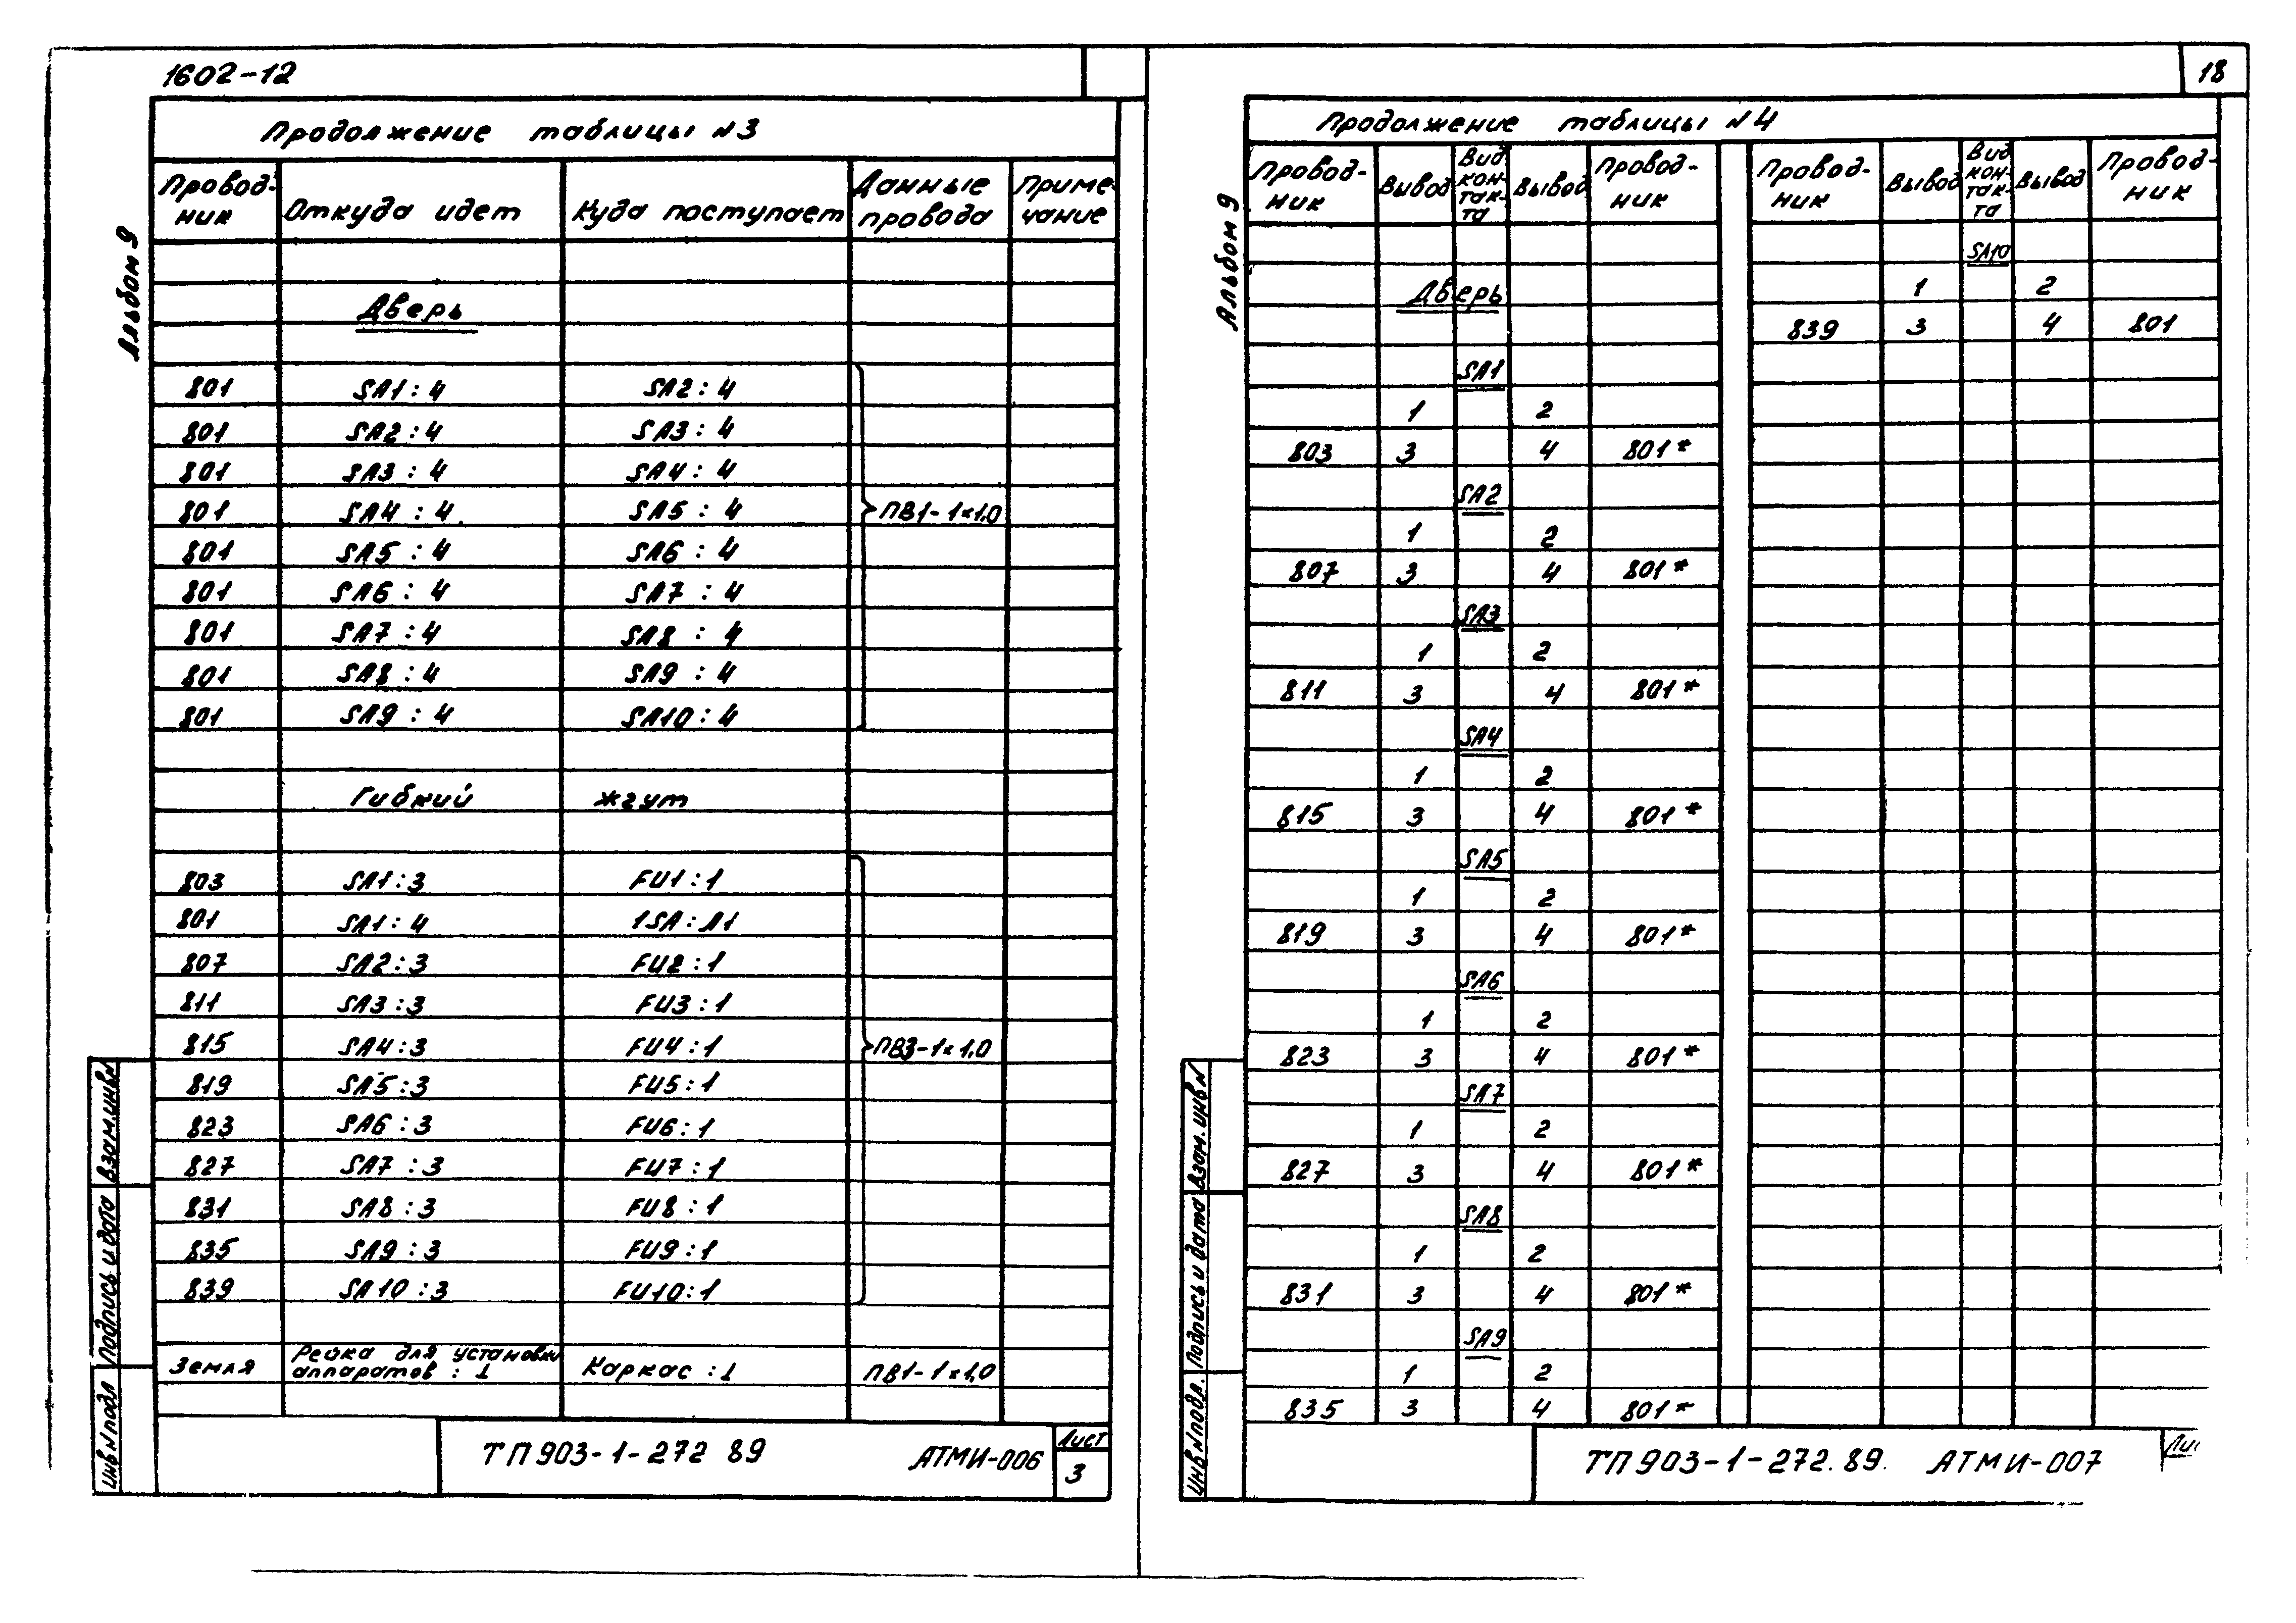 1602-12
18
Альбом 9
Продолжение таблицы №3
Провод-ник Откуда идет Куда поступает Данные провода Приме-чание
Дверь
801 SA1:4 SA2:4
801 SA2:4 SA3:4
801 SA3:4 SA4:4
801 SA4:4 SA5:4 ПВ1-1×1,0
801 SA5:4 SA6:4
801 SA6:4 SA7:4
801 SA7:4 SA8:4
801 SA8:4 SA9:4
801 SA9:4 SA10:4
Гибкий жгут
803 SA1:3 FU1:1
801 SA1:4 1SA:Л1
807 SA2:3 FU2:1
811 SA3:3 FU3:1
815 SA4:3 FU4:1 ПВ3-1×1,0
819 SA5:3 FU5:1
823 SA6:3 FU6:1
827 SA7:3 FU7:1
831 SA8:3 FU8:1
835 SA9:3 FU9:1
839 SA10:3 FU10:1
Земля Рейка для установки аппаратов:⊥ Каркас:⊥ ПВ1-1×1,0
Взам.инв№
Подпись и дата
Инв№подл
ТП 903-1-272 89 АТМИ-006
Лист
3
Альбом 9
Продолжение таблицы №4
Провод-ник Вывод Вид кон-так-та Вывод Провод-ник Провод-ник Вывод Вид кон-так-та Вывод Провод-ник
SA10
1 2
839 3 4 801
Дверь
SA1
1 2
803 3 4 801*
SA2
1 2
807 3 4 801*
SA3
1 2
811 3 4 801*
SA4
1 2
815 3 4 801*
SA5
1 2
819 3 4 801*
SA6
1 2
823 3 4 801*
SA7
1 2
827 3 4 801*
SA8
1 2
831 3 4 801*
SA9
1 2
835 3 4 801*
Взам.инв№
Подпись и дата
Инв.№подл.
ТП 903-1-272.89. АТМИ-007
Ли